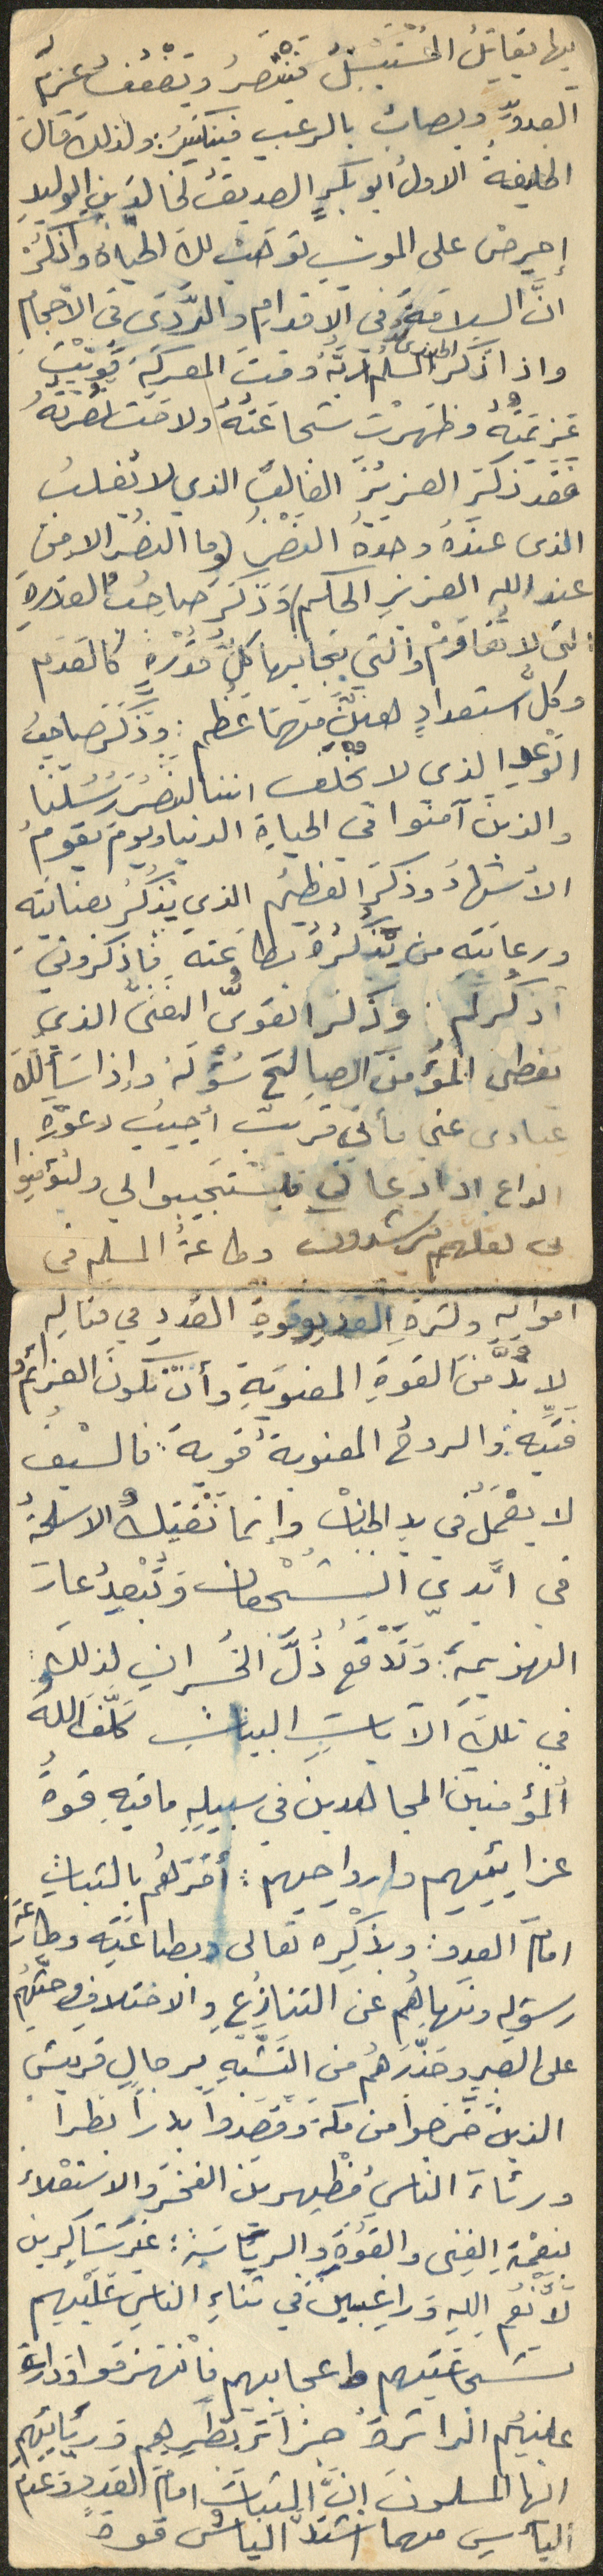 بها يقاتل المستبسل فينتصر ويضعف عزم
العدو ويصاب بالرعب فينكسر: ولذلك قال
الخليفة الاول أبو بكر الصديق لخالد بن الوليد
إحرص على الموت توهب لك الحياة واذكر
انَّ السلامة في الإقدام والرَّدى في الاحجام
واذا ذكر الجندي المسلم ربَّه وقت المعركة قويت
عزيمته وظهرت شجاعته ولاحت نصرته
فقد ذكر العزيز الغالب الذي لا يغلب
الذي عنده وحده النصر (وما النصر الا من
عند الله العزيز الحكيم) وذكر صاحب القدرة
التى لا تقاوم والتي بجانبها كل قدرة كالعدم
وكل استعداد هين مهما عظم: وذكر صاحب
الوعد الذى لا يخلف اننا لننصر رسلنا
والذين آمنوا في الحياة الدنيا ويوم يقوم
الأشهاد وذكر العظيم الذي يذكر بعنايته
ورعايته من يذكره بطاعته فاذكروني
أذكركم. وذكر القوىّ الغنىّ الذي
يعطي المؤمن الصالح سؤله وإذا سألك
عبادى عني فأني قريب أجيب دعوة
الداع اذا دعاني فليستجيبوا لي وليؤمنوا
بي لعلهم يرشدون وطاعة المسلم في
امواله وكثرة العدد وقوة العدد في قتاله
لا بدَّ من القوة المعنوية وأن تكون العزائم
فتيّة والروح المعنوية قوية: فالسيف
لا يعمل في يد الجبان وإنما تفتك الاسلحة
في أيدي الشجعان وتبعد عار
الهزيمة: وتدفع ذلَّ الخسران لذلك:
في تلك الآيات البينات كلَّف الله
المؤمنين المجاهدين في سبيله ما فيه قوة
عزائمهم وارواحهم: أمرهم بالثبات
امام العدو: وبذكره تعالى وبطاعته وطاعة
رسوله ونهاهم عن التنازع والاختلاف وحثهم
على الصبر وحذرهم من التشبه برجال قريش
الذين خرجوا من مكة وقصدوا بدراً بطراً
ورئاء الناس مظهرين الفخر والاستعلاء
بنعمة الغنى والقوة والرياسة: غير شاكرين
لأنعم الله وراغبين في ثناء الناس عليهم
بشجاعتهم واعجابهم فانهزموا ودارت
عليهم الدائرة جزاء بطرهم وريائهم
ايها المسلمون إنَّ الثبات امام العدو وعدم
اليأس مهما اشتد البأس قوة